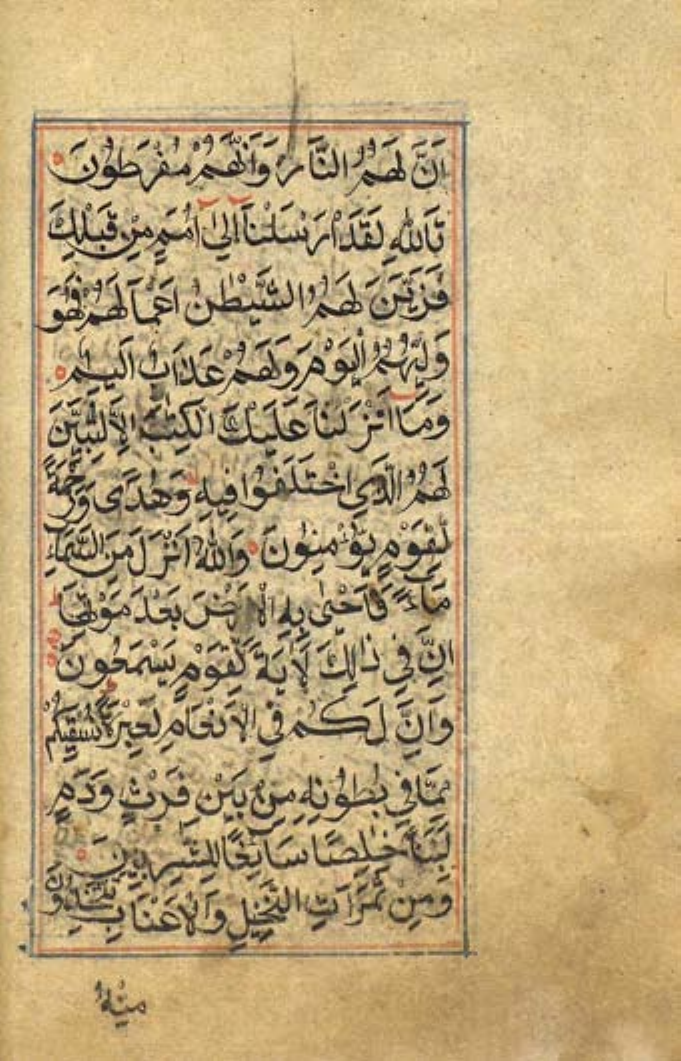 اَنَّ لَهُمُ النَّارَ وَاَنَّهُمْ مُفْرَطُوْنَ
تَاللّٰهِ لَقَدْ اَرْسَلْنَآ اِلٰٓى اُمَمٍ مِنْ قَبْلِكَ
فَزَيَّنَ لَهُمُ الشَّيْطٰنُ اَعْمَالَهُمْ فَهُوَ
وَلِيُّهُمُ الْيَوْمَ وَلَهُمْ عَذَابٌ اَلِيْمٌ
وَمَآ اَنْزَلْنَا عَلَيْكَ الْكِتٰبَ اِلَّا لِتُبَيِّنَ
لَهُمُ الَّذِى اخْتَلَفُوْا فِيْهِ وَهُدًى وَرَحْمَةً
لِّقَوْمٍ يُّؤْمِنُوْنَ وَاللّٰهُ اَنْزَلَ مِنَ السَّمَآءِ
مَآءً فَاَحْيٰى بِهِ الْاَرْضَ بَعْدَ مَوْتِهَا
اِنَّ فِيْ ذٰالِكَ لَاٰيَةً لِّقَوْمٍ يَسْمَعُوْنَ
وَاِنَّ لَكُمْ فِى الْاَنْعَامِ لَعِبْرَةً نُسْقِيْكُمْ
مِمَّا فِيْ بُطُوْنِهٖ مِنْ بَيْنِ فَرْثٍ وَدَمٍ
لَبَنًا خٰلِصًا سَآئِغًا لِلشّٰرِبِيْنَ
وَمِنْ ثَمَرَاتِ النَّخِيْلِ وَالْاَعْنَابِ تَتَّخِذُوْنَ
مِنْهُ